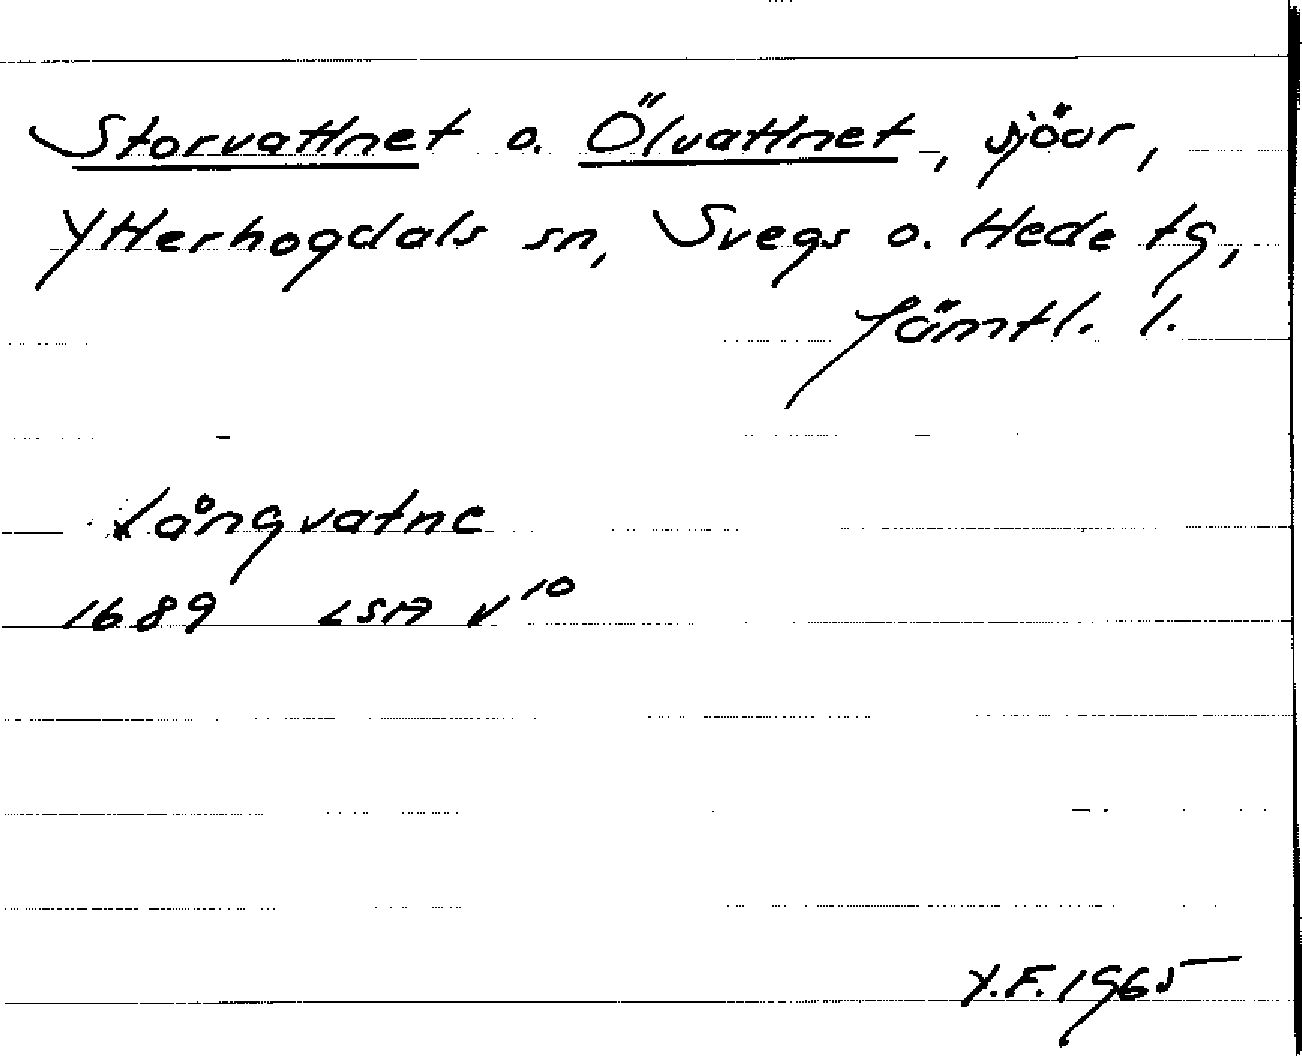 Storvattnet o. Ölvattnet, sjöar,
Ytterhogdals sn, Svegs o. Hede tg,
Jämtl. l.
Långvatne
1689 LSA V10
Y.F. 1965